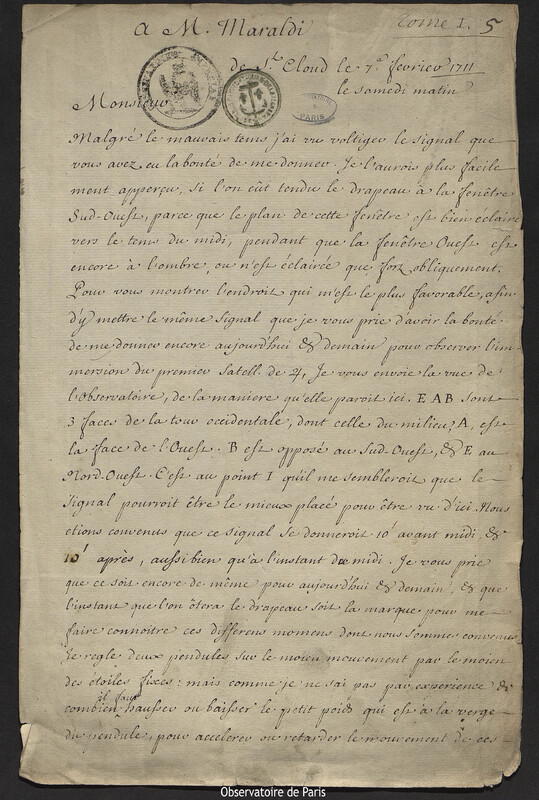 A M. Maraldi
Tome I. 5
de St. Cloud le 7e. fevrier 1711
le samedi matin
Monsieur
PARIS
Malgré le mauvais tems, j'ai vu voltiger le signal que
vous avez eu la bonté de me donner. Je l'aurois plus facile
ment apperçu, si l'on eût tendu le drapeau à la fenêtre
Sud-Ouest, parce que le plan de cette fenêtre est bien éclairé
vers le tems du midi, pendant que la fenêtre Ouest est
encore à l'ombre, ou n'est éclairée que fort obliquement.
Pour vous montrer l'endroit qui m'est le plus favorable, afin
d'y mettre le même signal que je vous prie d'avoir la bonté
de me donner encore aujourd'hui & demain pour observer l'im-
mersion du premier Satell. de ♃, Je vous envoie la vue de
l'Observatoire, de la maniere qu'elle paroit ici. E A B sont
3 faces de la tour occidentale, dont celle du milieu, A, est
la face de l'Ouest. B est opposé au Sud-Ouest, & E au
Nord-Ouest. C'est au point I qu'il me sembleroit que le
signal pourroit être le mieux placé pour être vu d'ici. Nous
etions convenus que ce signal se donneroit 10' avant midi, &
10' après, aussi bien qu'à l'instant du midi. Je vous prie
que ce soit encore de même pour aujourd'hui & demain, & que
l'instant que l'on ôtera le drapeau soit la marque pour me
faire connoitre ces differens momens dont nous sommes convenus.
Je regle deux pendules sur le moien mouvement par le moien
des étoiles fixes: mais comme je ne sai pas par experience de
combien il faut hausser ou baisser le petit poids qui est à la verge
du pendule, pour accelerer ou retarder le mouvement de ces
Observatoire de Paris